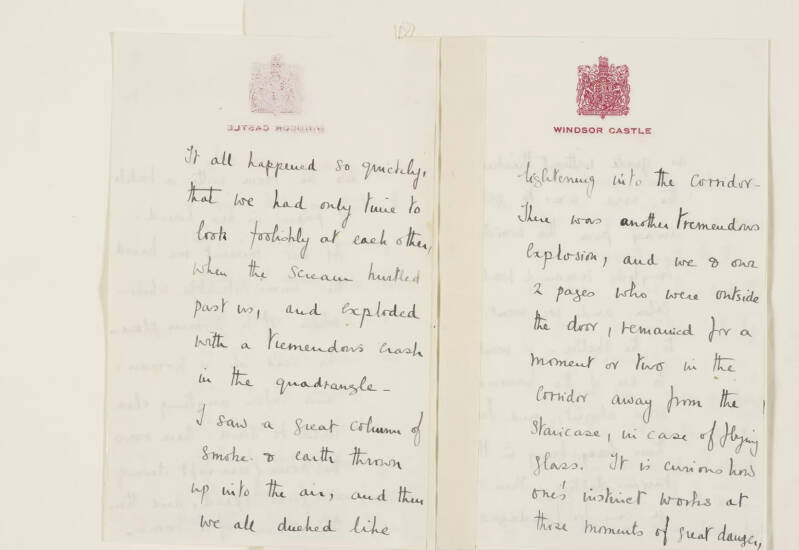 It all happened so quickly,
that we had only time to
look foolishly at each other,
when the scream hurtled
past us, and exploded
with a tremendous crash
in the quadrangle -
I saw a great column of
smoke & earth thrown
up into the air, and then
we all ducked like
WINDSOR CASTLE
lightening into the corridor -
There was another tremendous
explosion, and we & our
2 pages who were outside
the door, remained for a
moment or two in the
corridor away from the
staircase, in case of flying
glass. It is curious how
one's instinct works at
those moments of great danger,